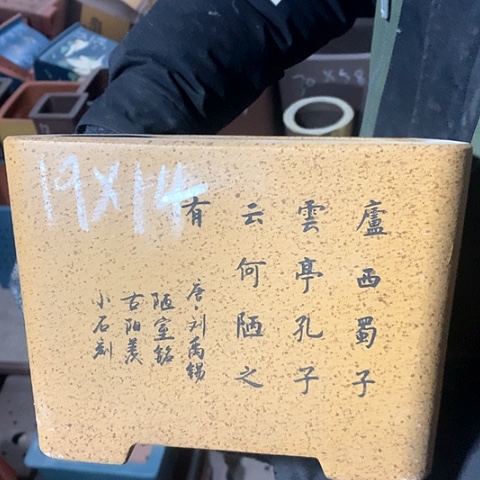 廬西蜀子
雲亭孔子
云何陋之
有
唐刘禹锡
陋室銘
古阳羨
小石刻
19X14
70X58